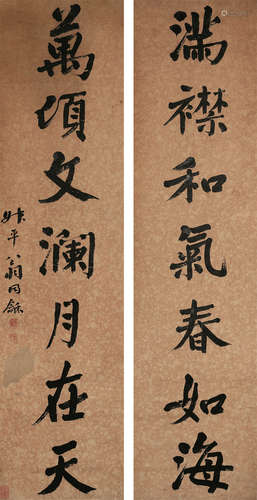 满襟和氣春如海
萬頃文澜月在天
叔平翁同龢